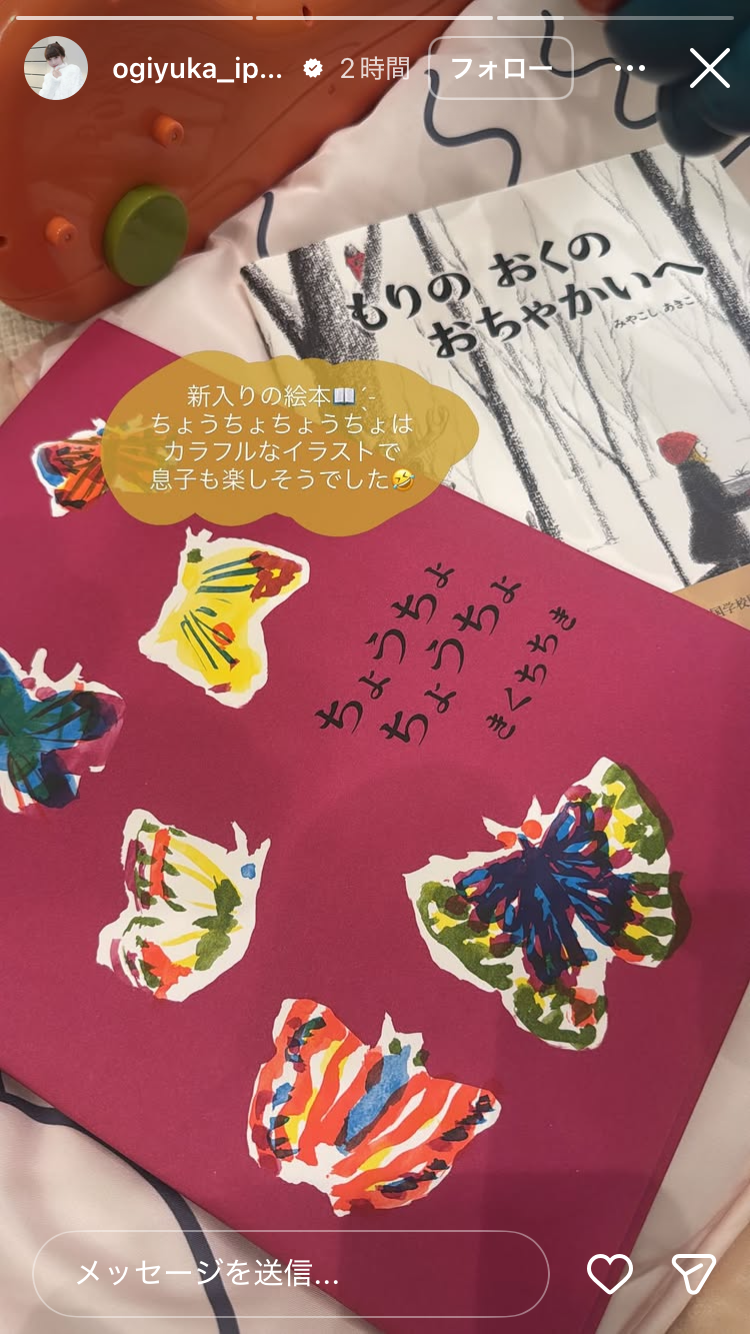 ogiyuka_ip... 2時間 フォロー
もりの おくの
おちゃかいへ
みやこし あきこ
新入りの絵本📖 ̖́-
ちょうちょちょうちょは
カラフルなイラストで
息子も楽しそうでした🤣
ちょうちょ
ちょうちょ
きくちちき
国学校
メッセージを送信...